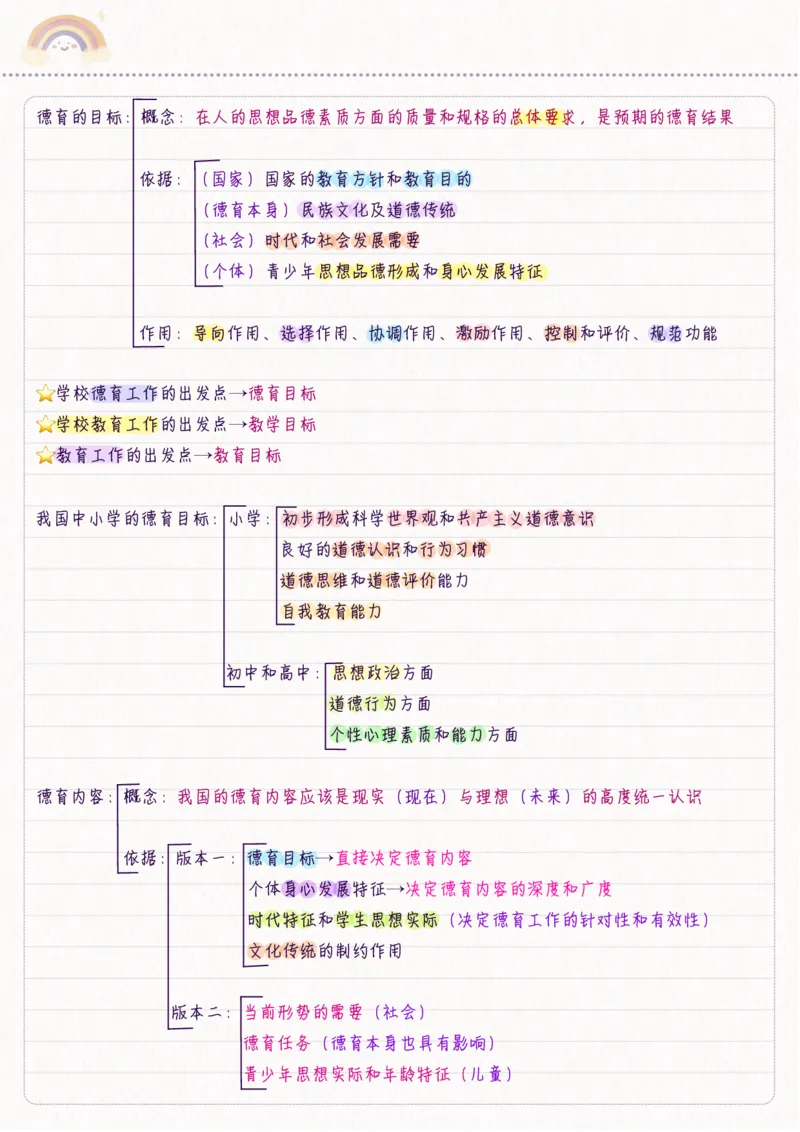 德育的目标：概念：在人的思想品德素质方面的质量和规格的总体要求，是预期的德育结果
依据：（国家）国家的教育方针和教育目的
（德育本身）民族文化及道德传统
（社会）时代和社会发展需要
（个体）青少年思想品德形成和身心发展特征
作用：导向作用、选择作用、协调作用、激励作用、控制和评价、规范功能
⭐学校德育工作的出发点→德育目标
⭐学校教育工作的出发点→教学目标
⭐教育工作的出发点→教育目标
我国中小学的德育目标：小学：初步形成科学世界观和共产主义道德意识
良好的道德认识和行为习惯
道德思维和道德评价能力
自我教育能力
初中和高中：思想政治方面
道德行为方面
个性心理素质和能力方面
德育内容：概念：我国的德育内容应该是现实（现在）与理想（未来）的高度统一认识
依据：版本一：德育目标→直接决定德育内容
个体身心发展特征→决定德育内容的深度和广度
时代特征和学生思想实际（决定德育工作的针对性和有效性）
文化传统的制约作用
版本二：当前形势的需要（社会）
德育任务（德育本身也具有影响）
青少年思想实际和年龄特征（儿童）